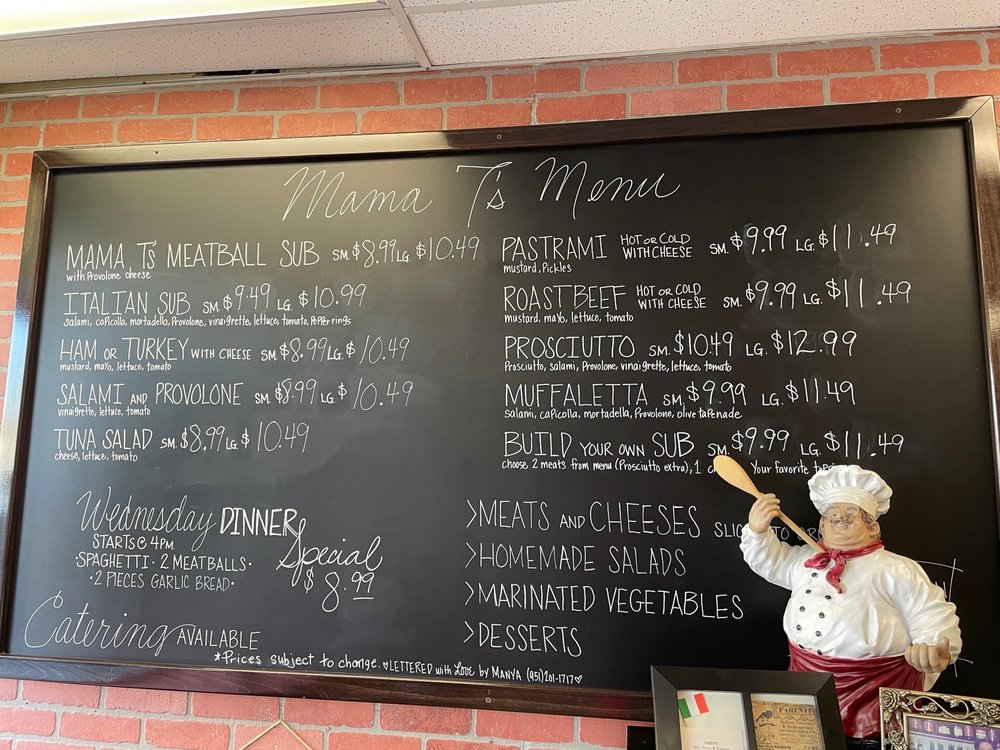 Mama T's Menu
MAMA T's MEATBALL SUB SM. $8.99 LG. $10.49
with Provolone cheese
ITALIAN SUB SM. $9.49 LG. $10.99
salami, capicolla, mortadella, Provolone, vinaigrette, lettuce, tomato, Pepper rings
HAM OR TURKEY WITH CHEESE SM. $8.99 LG. $10.49
mustard, mayo, lettuce, tomato
SALAMI AND PROVOLONE SM. $8.99 LG. $10.49
vinaigrette, lettuce, tomato
TUNA SALAD SM. $8.99 LG. $10.49
cheese, lettuce, tomato
PASTRAMI HOT OR COLD WITH CHEESE SM. $9.99 LG. $11.49
mustard, Pickles
ROASTBEEF HOT OR COLD WITH CHEESE SM. $9.99 LG. $11.49
mustard, mayo, lettuce, tomato
PROSCIUTTO SM. $10.49 LG. $12.99
Prosciutto, salami, Provolone, vinaigrette, lettuce, tomato
MUFFALETTA SM. $9.99 LG. $11.49
salami, capicolla, mortadella, Provolone, olive tapenade
BUILD YOUR OWN SUB SM. $9.99 LG. $11.49
choose 2 meats from menu (Prosciutto extra), 1 Your favorite
Wednesday DINNER Special
STARTS @ 4PM
·SPAGHETTI · 2 MEATBALLS·
·2 PIECES GARLIC BREAD·
$8.99
Catering AVAILABLE
>MEATS AND CHEESES
>HOMEMADE SALADS
>MARINATED VEGETABLES
>DESSERTS
*Prices subject to change. ♡LETTERED with Love by MANYA (951) 201-1717♡